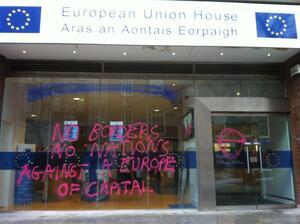 European Union House
Áras an Aontais Eorpaigh
NO BORDERS
NO NATIONS
AGAINST A EUROPE
OF CAPITAL